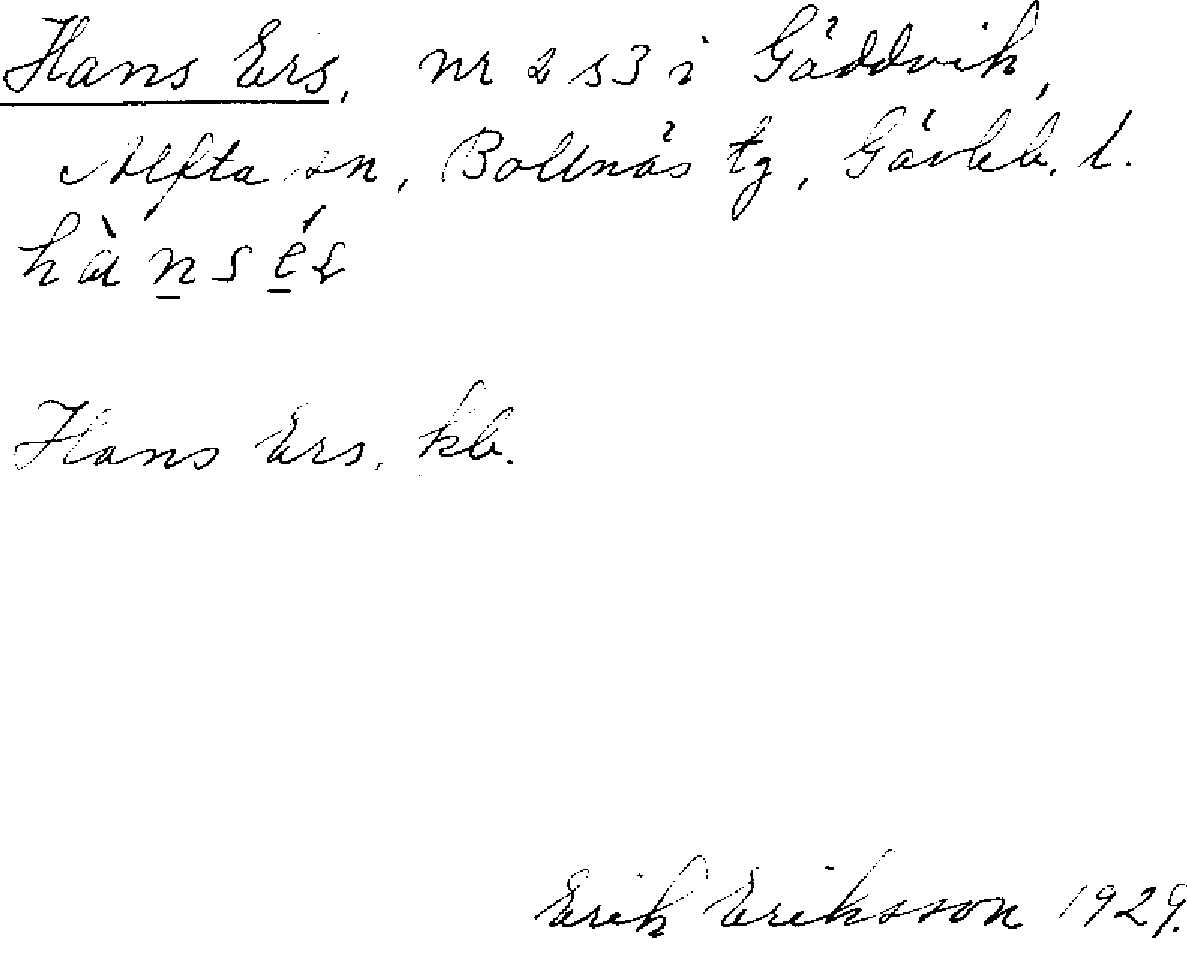 Hans Ers, nr 2 s3 i Gäddvik,
Alfta sn, Bollnäs tg, Gävleb. l.
Hans Ers, kb.
Erik Eriksson 1929.